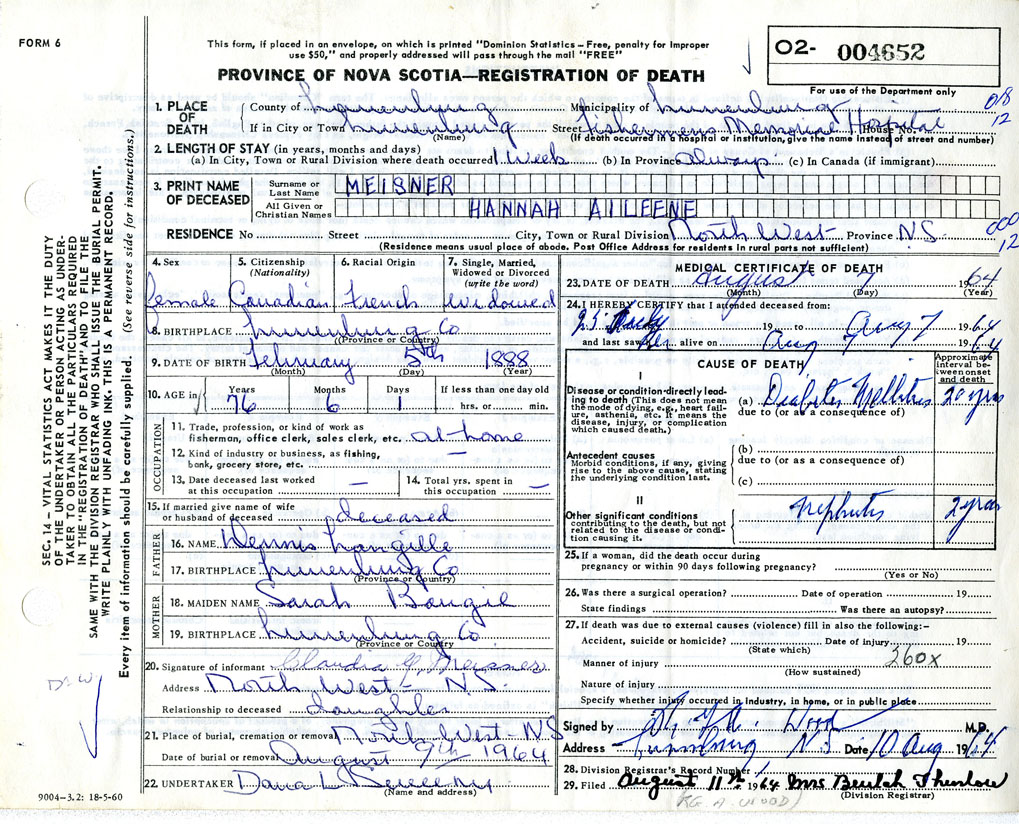 FORM 6
This form, if placed in an envelope, on which is printed "Dominion Statistics – Free, penalty for improper
use $50," and properly addressed will pass through the mail "FREE"
PROVINCE OF NOVA SCOTIA—REGISTRATION OF DEATH
O2- 004652
For use of the Department only
018
12
1. PLACE OF DEATH
County of Lunenburg Municipality of Lunenburg
If in City or Town Lunenburg Street Fishermens Memorial Hospital House No.
(Name) (If death occurred in hospital or institution, give the name instead of street and number)
2. LENGTH OF STAY (in years, months and days)
(a) In City, Town or Rural Division where death occurred 1 week (b) In Province always (c) In Canada (if immigrant)
3. PRINT NAME OF DECEASED
Surname or Last Name MEISNER
All Given or Christian Names HANNAH AILEENE
RESIDENCE No Street City, Town or Rural Division North West Province N.S.
000
12
(Residence means usual place of abode. Post Office Address for residents in rural parts not sufficient)
4. Sex
female
5. Citizenship (Nationality)
Canadian
6. Racial Origin
French
7. Single, Married, Widowed or Divorced (write the word)
widowed
8. BIRTHPLACE Lunenburg Co
(Province or Country)
9. DATE OF BIRTH February 5th 1888
(Month) (Day) (Year)
10. AGE in Years Months Days If less than one day old
76 6 1 hrs. or min.
OCCUPATION
11. Trade, profession, or kind of work as
fisherman, office clerk, sales clerk, etc. at home
12. Kind of industry or business, as fishing,
bank, grocery store, etc. —
13. Date deceased last worked
at this occupation —
14. Total yrs. spent in
this occupation —
15. If married give name of wife
or husband of deceased deceased
FATHER
16. NAME Dennis Langille
17. BIRTHPLACE Lunenburg Co
(Province or Country)
MOTHER
18. MAIDEN NAME Sarah Bougil
19. BIRTHPLACE Lunenburg Co
(Province or Country)
20. Signature of informant Claudia G. Meisner
Address North West – N.S.
Relationship to deceased daughter
21. Place of burial, cremation or removal North West – N.S
Date of burial or removal August 9th 1964
22. UNDERTAKER Dana L.
(Name and address)
9004–3.2: 18-5-60
MEDICAL CERTIFICATE OF DEATH
23. DATE OF DEATH August 7 1964
(Month) (Day) (Year)
24. I HEREBY CERTIFY that I attended deceased from:
19 to Aug 7 1964
and last saw her alive on Aug 7 1964
CAUSE OF DEATH
Approximate interval between onset and death
I
Disease or condition-directly leading to death (This does not mean
the mode of dying, e.g., heart failure, asthenia, etc. It means the
disease, injury, or complication
which caused death.)
(a) Diabetes Mellitus 20 yrs
due to (or as a consequence of)
Antecedent causes
Morbid conditions, if any, giving
rise to the above cause, stating
the underlying condition last.
(b)
due to (or as a consequence of)
(c)
II
Other significant conditions
contributing to the death, but not
related to the disease or condition causing it.
Nephritis 2 yrs
25. If a woman, did the death occur during
pregnancy or within 90 days following pregnancy?
(Yes or No)
26. Was there a surgical operation? Date of operation 19
State findings Was there an autopsy?
27. If death was due to external causes (violence) fill in also the following:-
Accident, suicide or homicide? Date of injury 19
(State which)
Manner of injury 260X
(How sustained)
Nature of injury
Specify whether injury occurred in industry, in home, or in public place
Signed by Wood M.D.
Address Lunenburg N.S. Date 10 Aug 1964
28. Division Registrar's Record Number
29. Filed August 11th 1964 Mrs Beulah Thurlow
(Division Registrar)
(RG. A. WOOD)
SEC. 14 – VITAL STATISTICS ACT MAKES IT THE DUTY
OF THE UNDERTAKER OR PERSON ACTING AS UNDERTAKER TO OBTAIN ALL THE PARTICULARS REQUIRED
IN THE "REGISTRATION OF DEATH" AND TO FILE THE
SAME WITH THE DIVISION REGISTRAR WHO SHALL ISSUE THE BURIAL PERMIT.
WRITE PLAINLY WITH UNFADING INK. THIS IS A PERMANENT RECORD.
Every item of information should be carefully supplied. (See reverse side for instructions.)